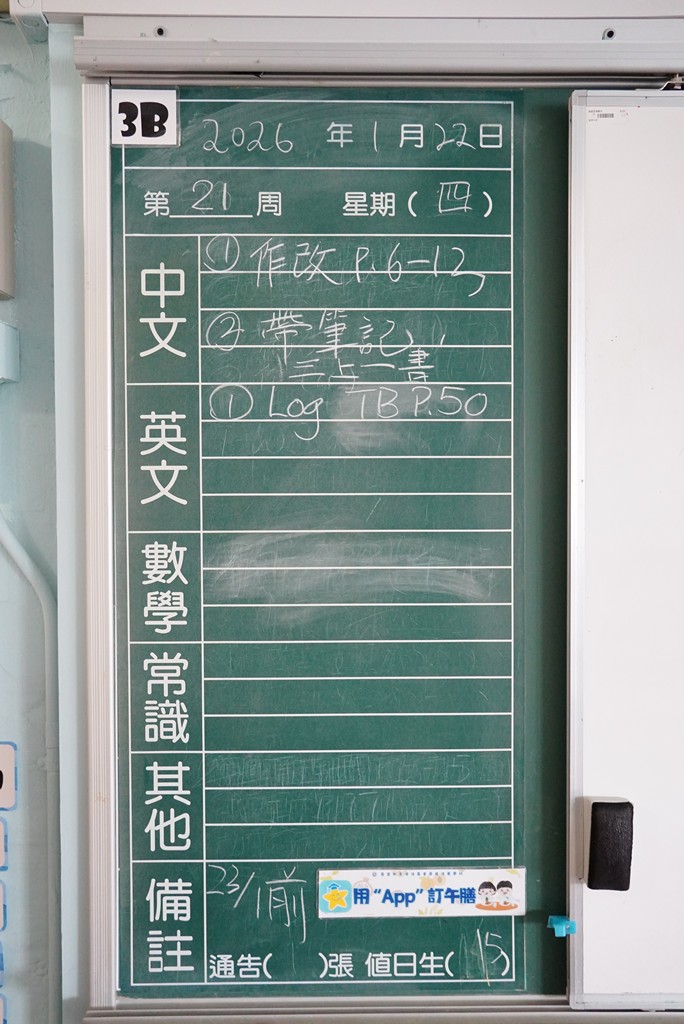 3B
2026 年 1 月 22 日
第 21 周 星期( 四 )
中文
① 作改 P.6-13
② 帶筆記
三占一書
英文
① Log TB P.50
數學
常識
其他
備註
23/1前
用“App”訂午膳
通告( )張 值日生( 15 )